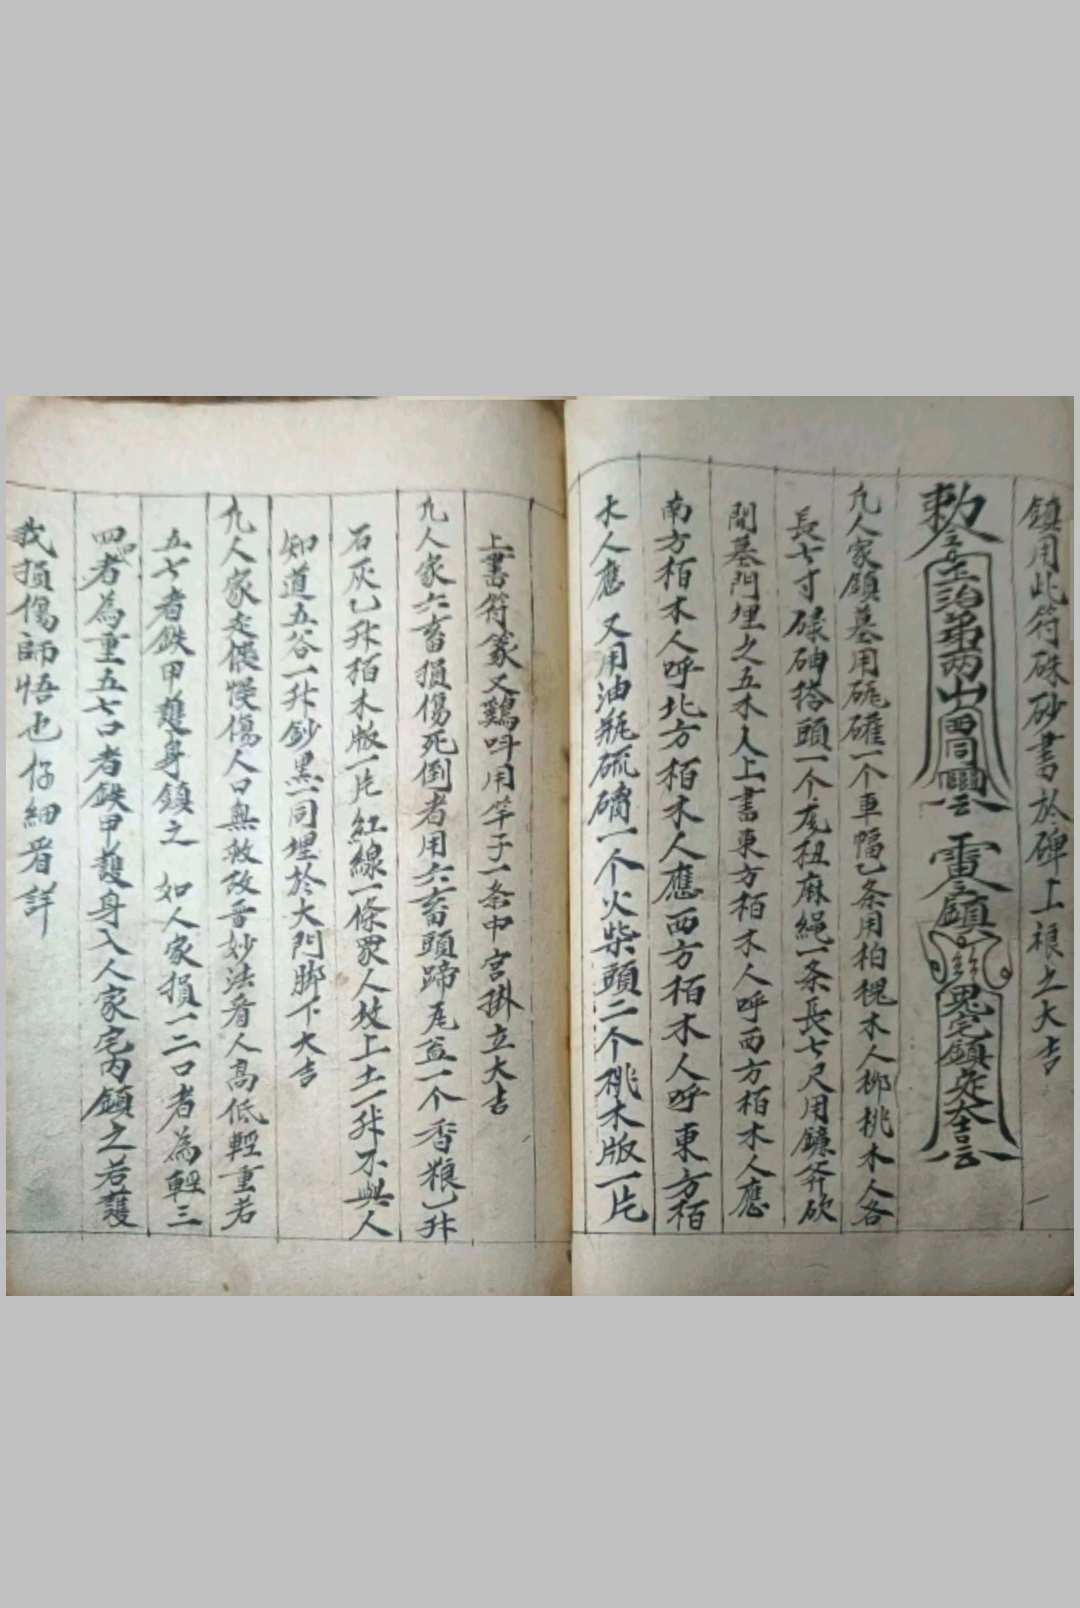 鎮用此符硃砂書於碑上禳之大吉
敕令
雷令鎮
鎮定大吉
凢人家鎮墓用硙確一个車幅乙条用柏槐木人桞桃木人各
長七寸碌砷搭頭一个麻繩一条長七尺用鐮斧砍
開墓門埋之五木人上書東方栢木人呼西方栢木人應
南方栢木人呼北方栢木人應西方栢木人呼東方栢
木人應 又用油瓶硫磺一个火柴頭二个桃木版一片
上書符篆又鷄呌用竿子一条中宮掛立大吉
凢人家六畜損傷死倒者用六畜頭蹄尾盆一个香粮乙升
石灰乙升栢木版一片紅線一條眾人坟上土一升不與人
知道五谷一升鈔黒一同埋於大門脚下大吉
凢人家走懹慢傷人口無救改吾妙法看人高低輕重若
五七者鉄甲護身鎮之 如人家損一二口者為輕三
四者為重五七口者鉄甲護身入人家宅内鎮之若護
我損傷師悟也仔細看詳